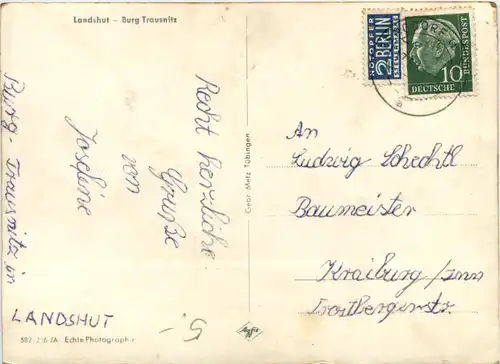 Landshut – Burg Trausnitz
NOTOPFER
2 BERLIN
STEUERMARKE
10
DEUTSCHE
BUNDESPOST
Recht herzliche
Grüße
von
Josefine
Burg - Trausnitz in
LANDSHUT
5.-
An
Ludwig Schechtl
Baumeister
Kraiburg/Inn
Trostbergerstr.
Gebr. Metz Tübingen
Agfa
Echte Photographie